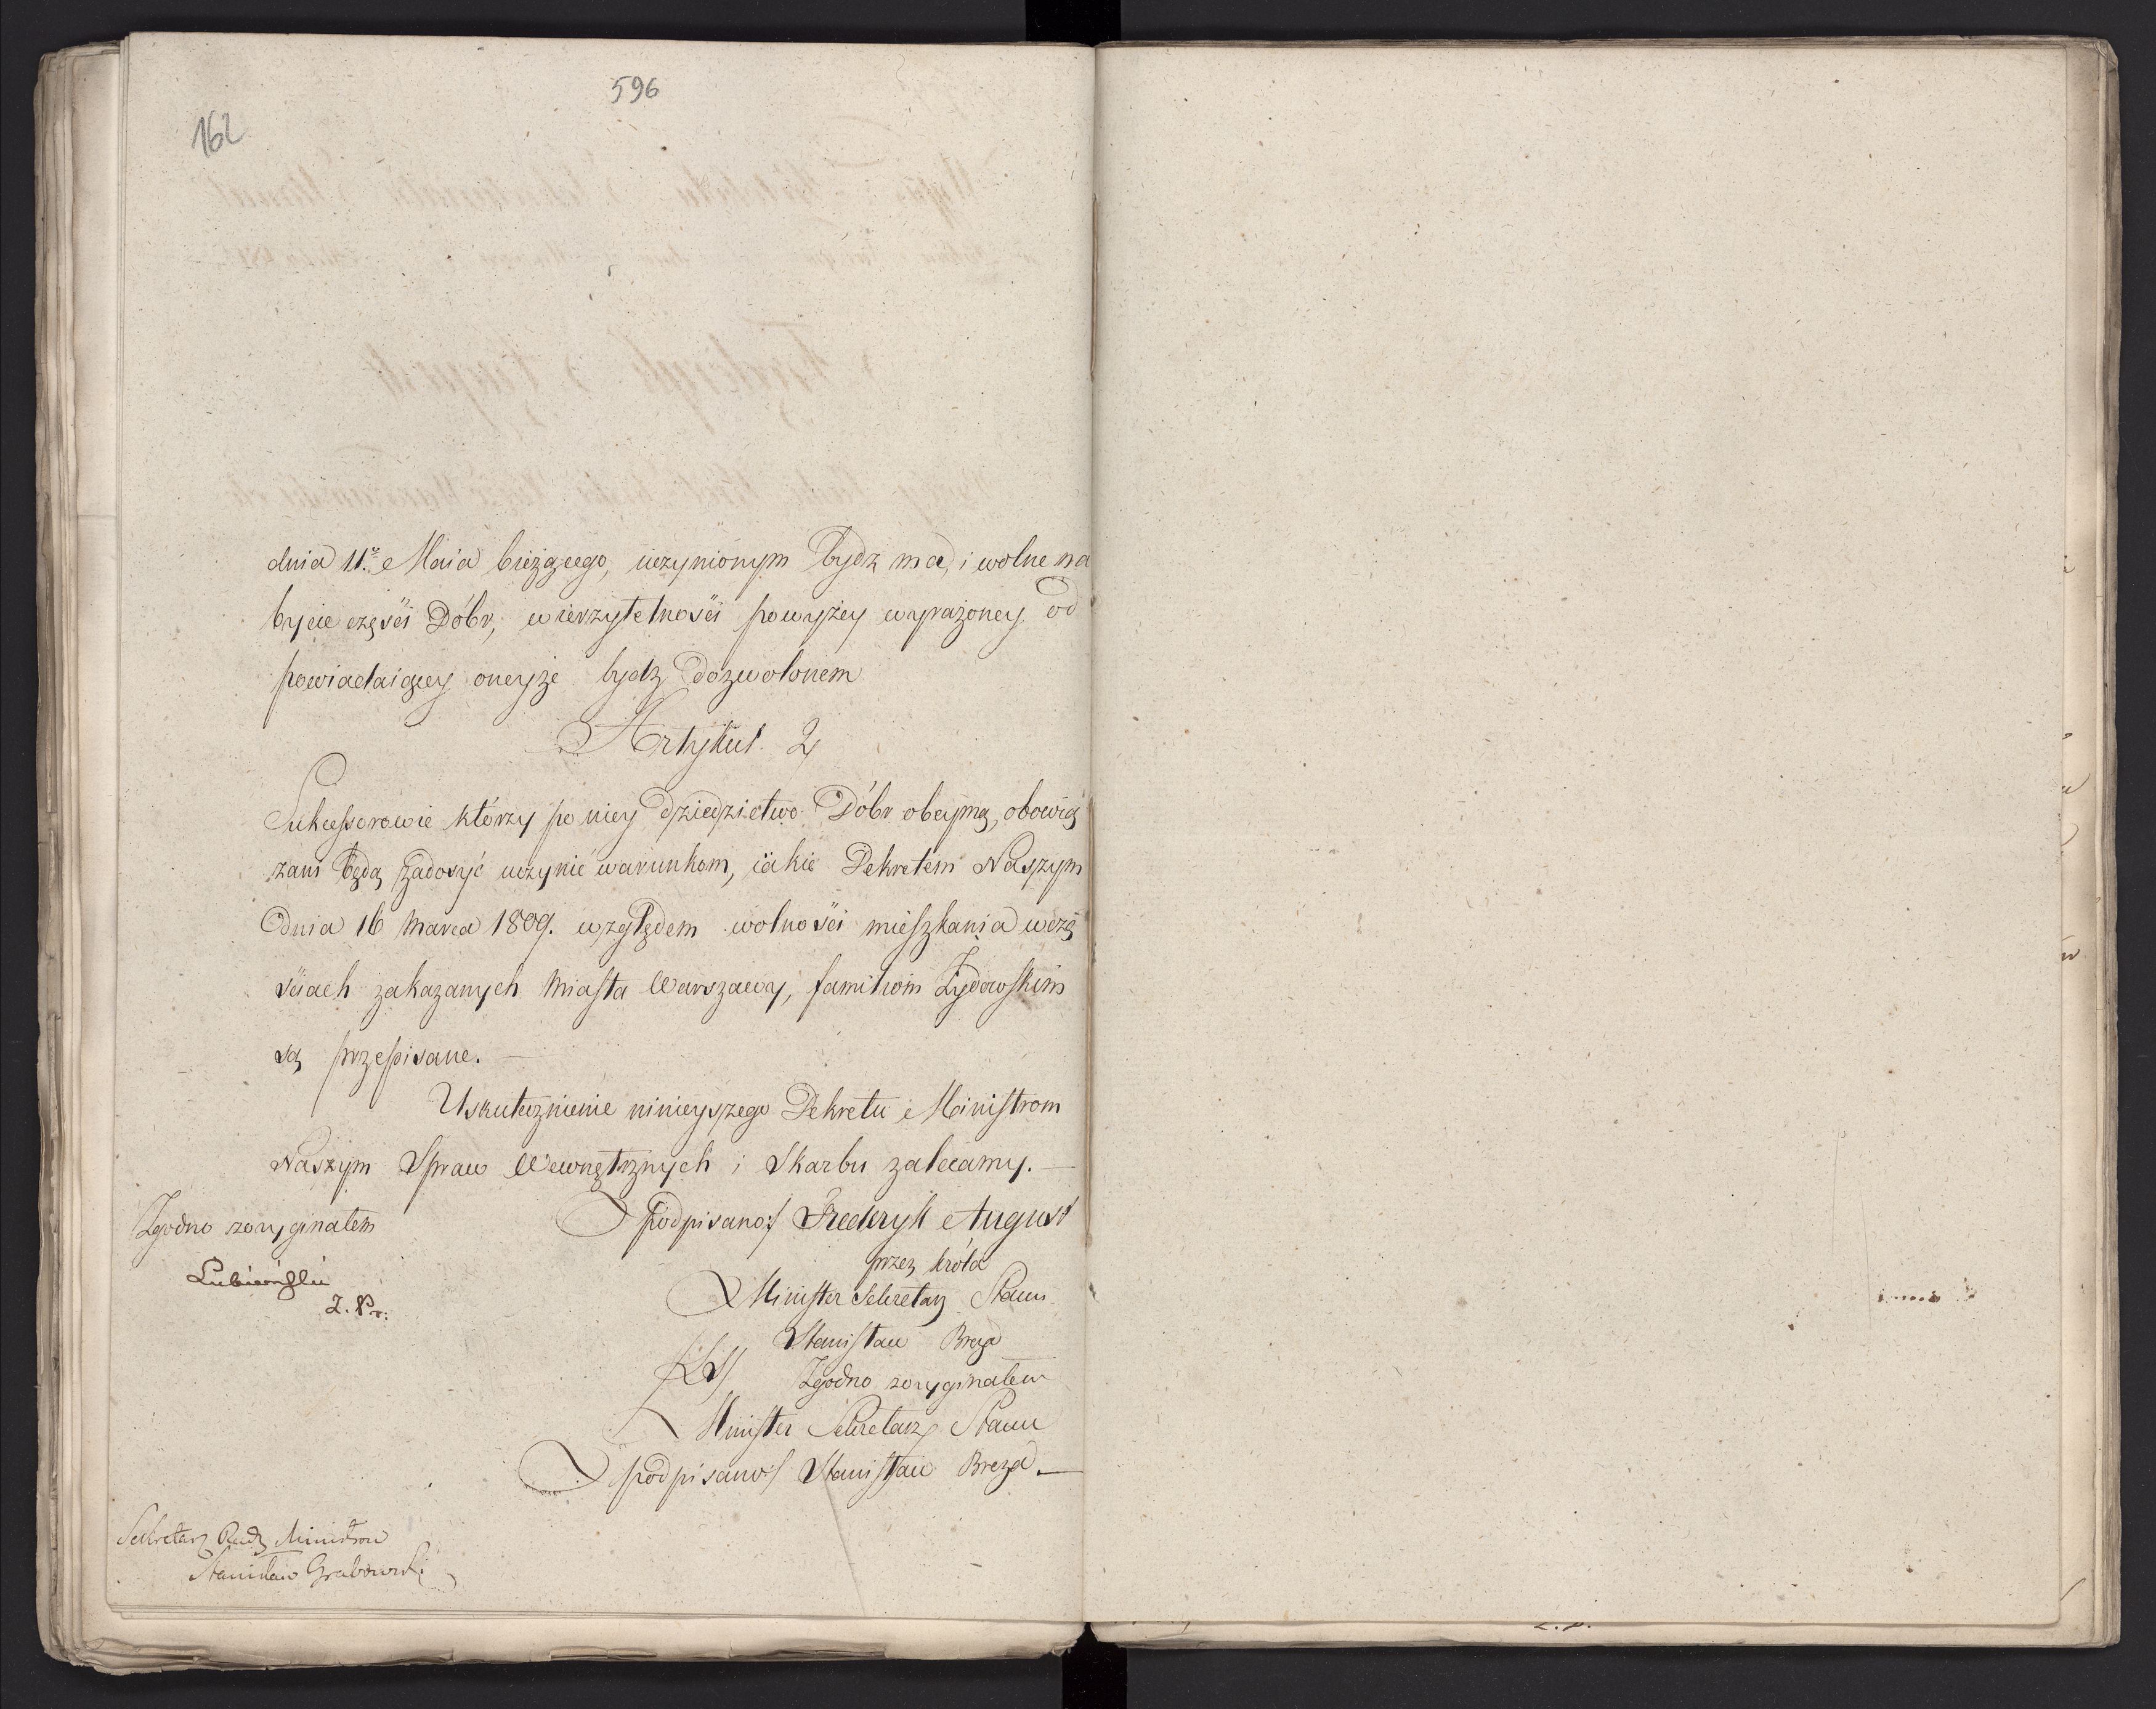 596
162
dnia 11go Maia bieżącego, uczynionym bydz ma, i wolne na
bycie częsci Dóbr, wierzytelnosci powyżey wyrażoney od
powiadaiącey oneyże bydz dozwolonem
Artykuł 2
Sukcessorowie którzy po niey dziedzictwo Dóbr obeymą, obowią
zani będą zadosyć uczynić warunkom, iakie Dekretem Naszym
Dnia 16 Marca 1809. względem wolności mieszkania w czę
sciach zakazanych Miasta Warszawy, familiom Żydowskim
są przepisane. —
Uskutecznienie ninieyszego Dekretu Ministrom
Naszym Spraw Wewnętrznych i Skarbu zalecamy. —
podpisano:/ Frederyk August
przez króla
Minister Sekretarz Stanu
Stanisław Breza
/LS/ Zgodno z oryginałem
Minister Sekretarz Stanu
podpisano:/ Stanisław Breza —
Zgodno z oryginałem
Lubieński
Sekretarz Rady Ministrow
Stanisław Grabowski